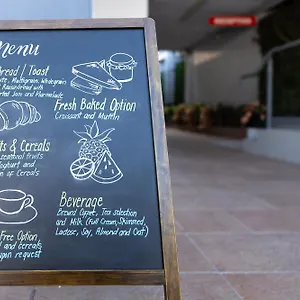 Menu
Bread / Toast
Multigrain Wholegrain
Raisinbread with
Jam and Marmalade
Fresh Baked Option
Croissant and Muffin
ts & Cereals
seasonal fruits
Yoghurt and
on of Cereals
Beverage
Brewed Coffee, Tea selection
and Milk (Full Cream, Skimmed,
Lactose, Soy, Almond and Oat)
Free Option
and cereals
upon request
RECEPTION